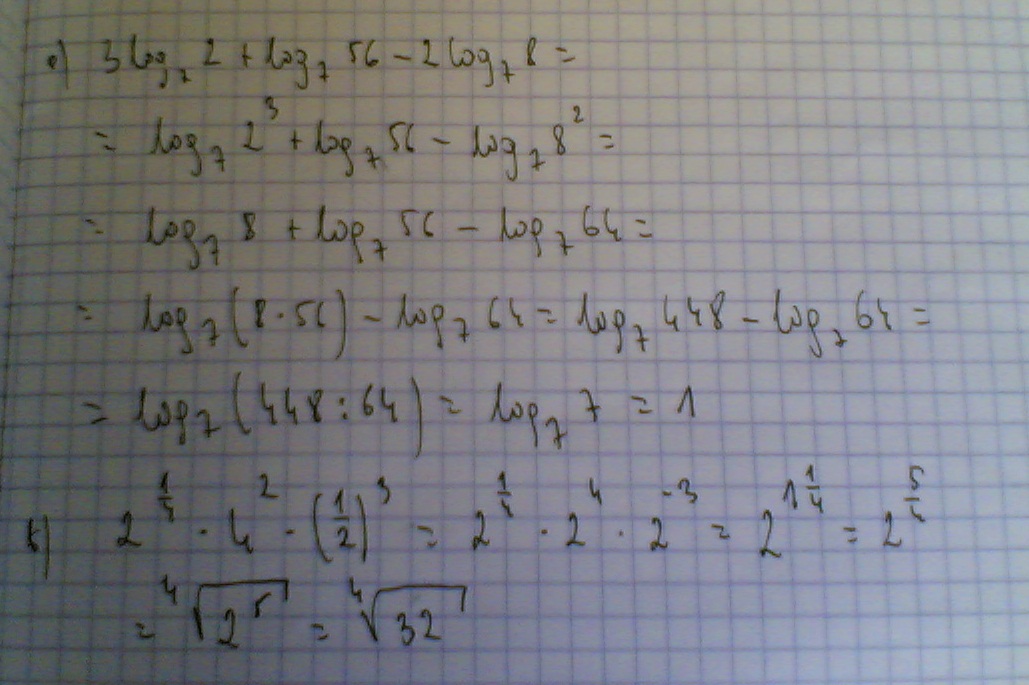 a) 3 log₇ 2 + log₇ 56 − 2 log₇ 8 =
= log₇ 2³ + log₇ 56 − log₇ 8² =
= log₇ 8 + log₇ 56 − log₇ 64 =
= log₇ (8 · 56) − log₇ 64 = log₇ 448 − log₇ 64 =
= log₇ (448 : 64) = log₇ 7 = 1
b) 2^(1/4) · 4² · (1/2)³ = 2^(1/4) · 2⁴ · 2⁻³ = 2^(1 1/4) = 2^(5/4)
= ⁴√2⁵ = ⁴√32